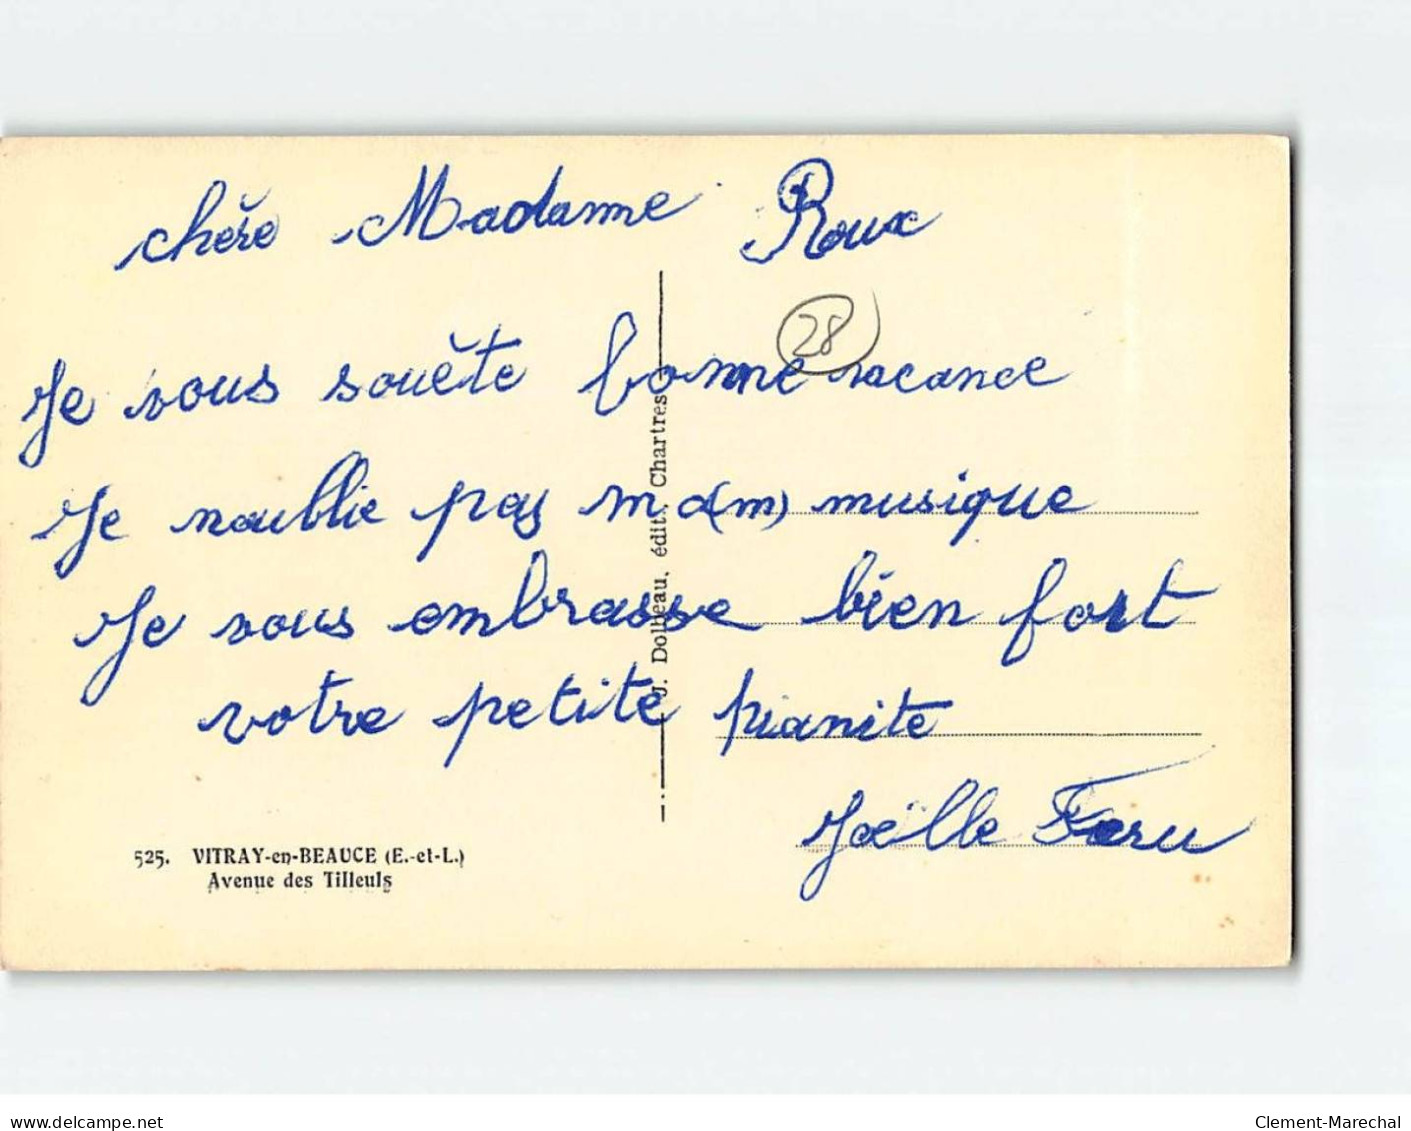 chère Madame Roux
28
Je vous souète bonne vacance
Je noublie pas m d(m) musique
Je vous embrasse bien fort
votre petite pianite
Joëlle Feru
J. Dolbeau, édit., Chartres
525. VITRAY-en-BEAUCE (E.-et-L.)
Avenue des Tilleuls
delcampe.net
Clement-Marechal